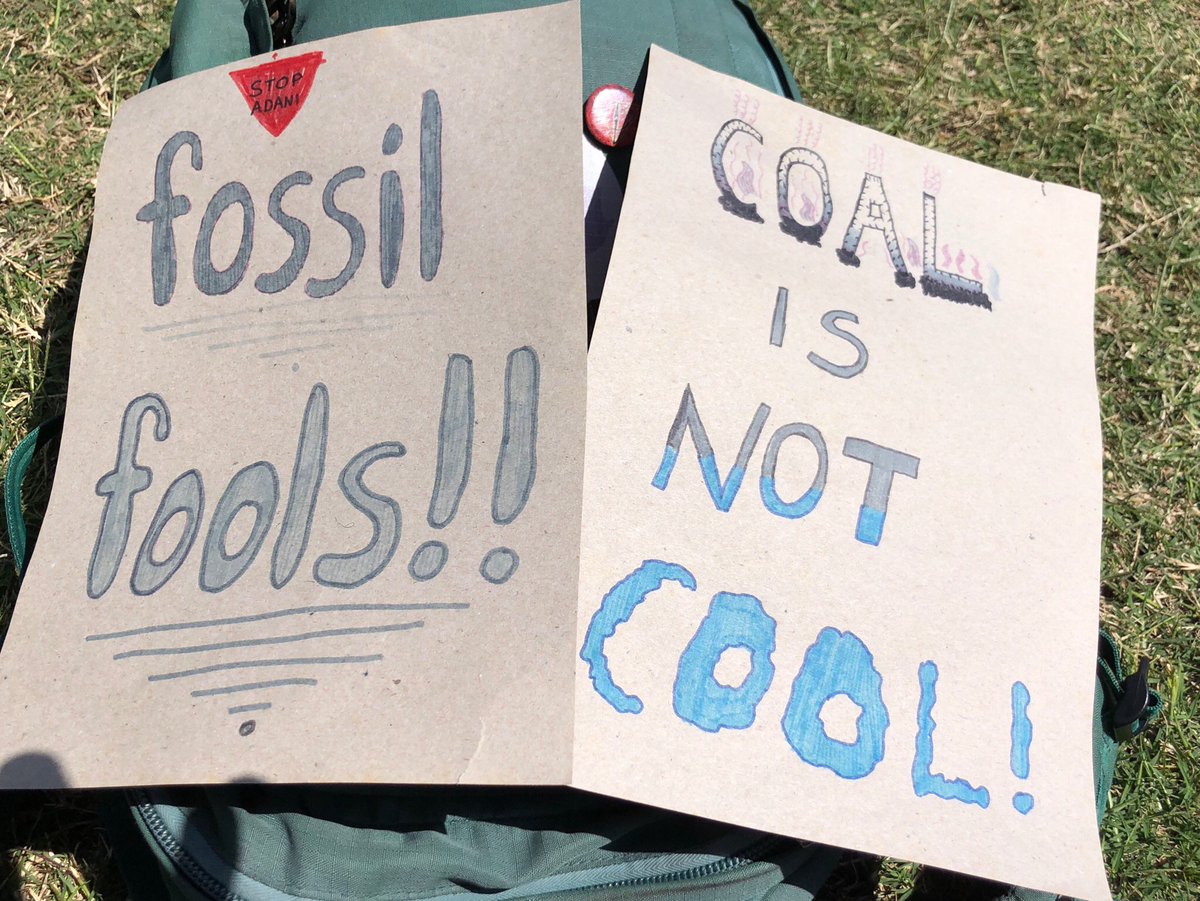 STOP
ADANI
fossil
fools!!
COAL
IS
NOT
COOL!